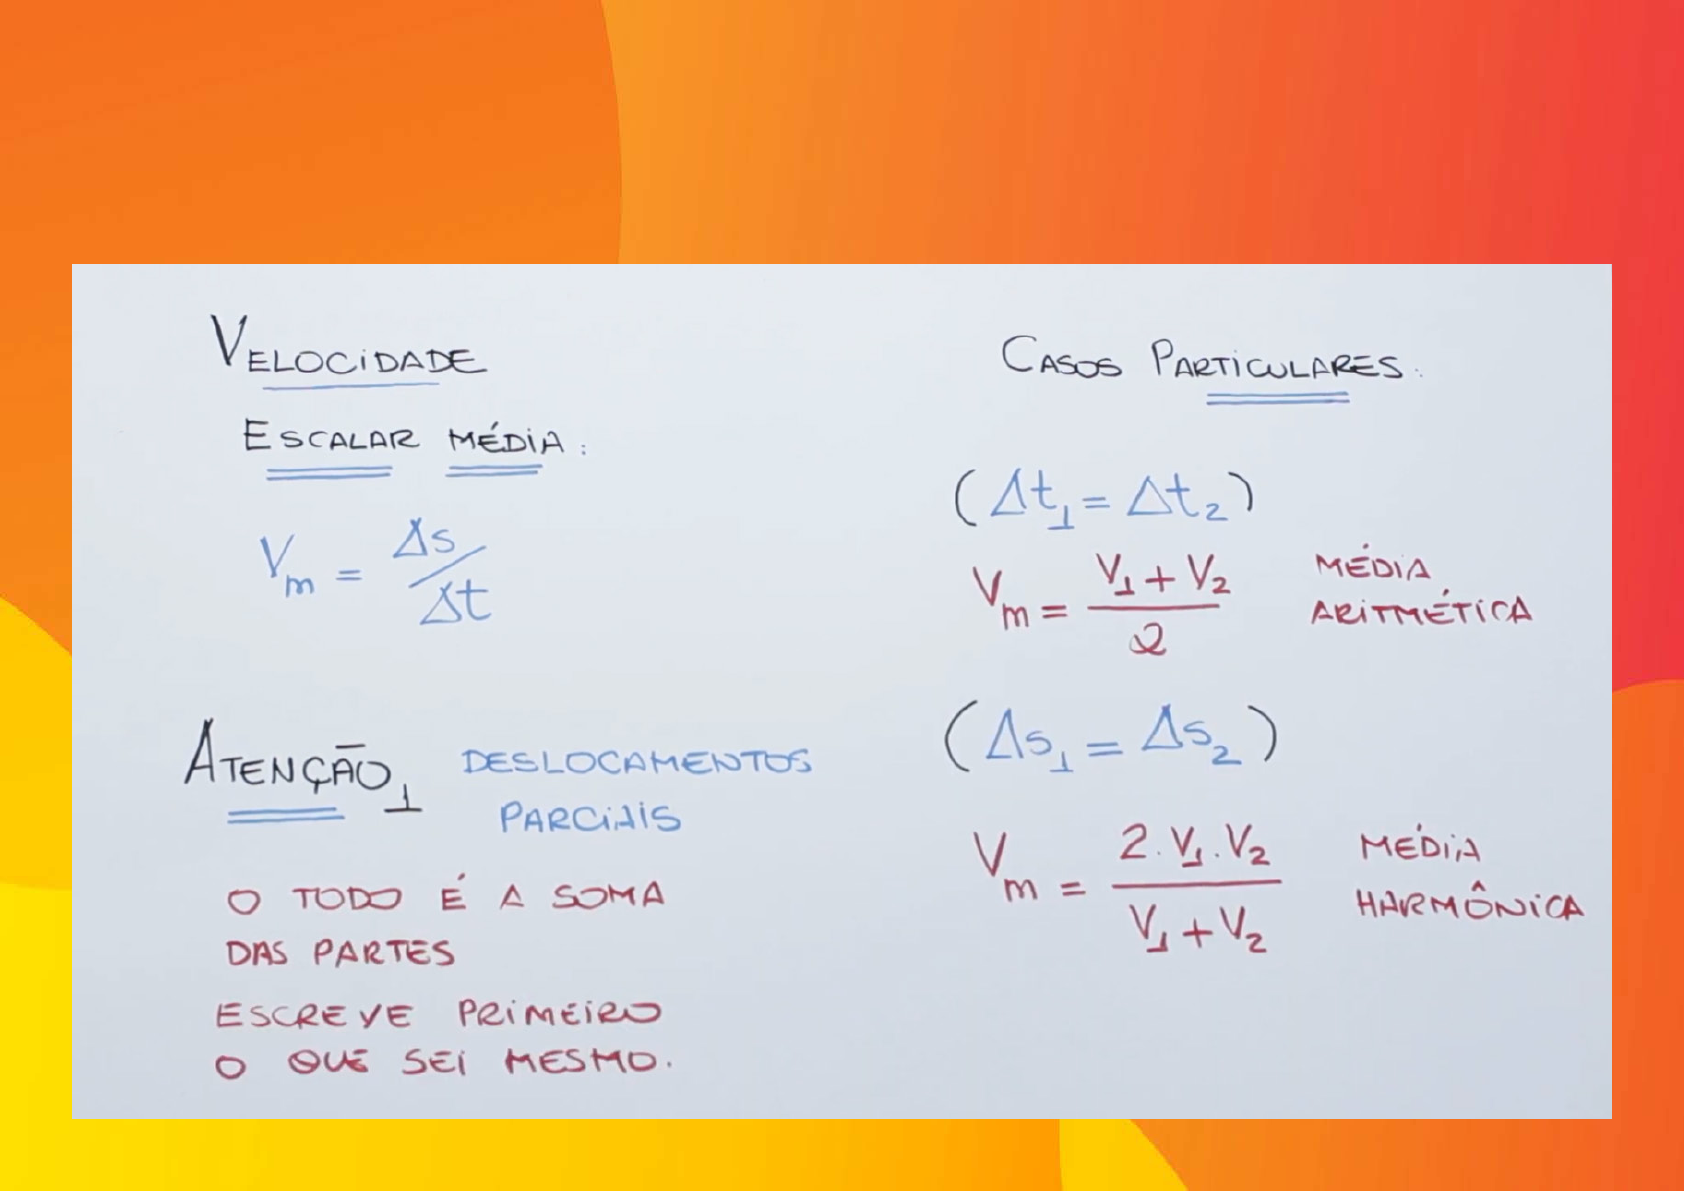 VELOCIDADE
ESCALAR MÉDIA:
Vm = Δs/Δt
ATENÇÃO! DESLOCAMENTOS
PARCIAIS
O TODO É A SOMA
DAS PARTES
ESCREVE PRIMEIRO
O QUE SEI MESMO.
CASOS PARTICULARES:
(Δt1 = Δt2)
Vm = V1 + V2 / 2 MÉDIA
ARITMÉTICA
(Δs1 = Δs2)
Vm = 2.V1.V2 / V1 + V2 MÉDIA
HARMÔNICA